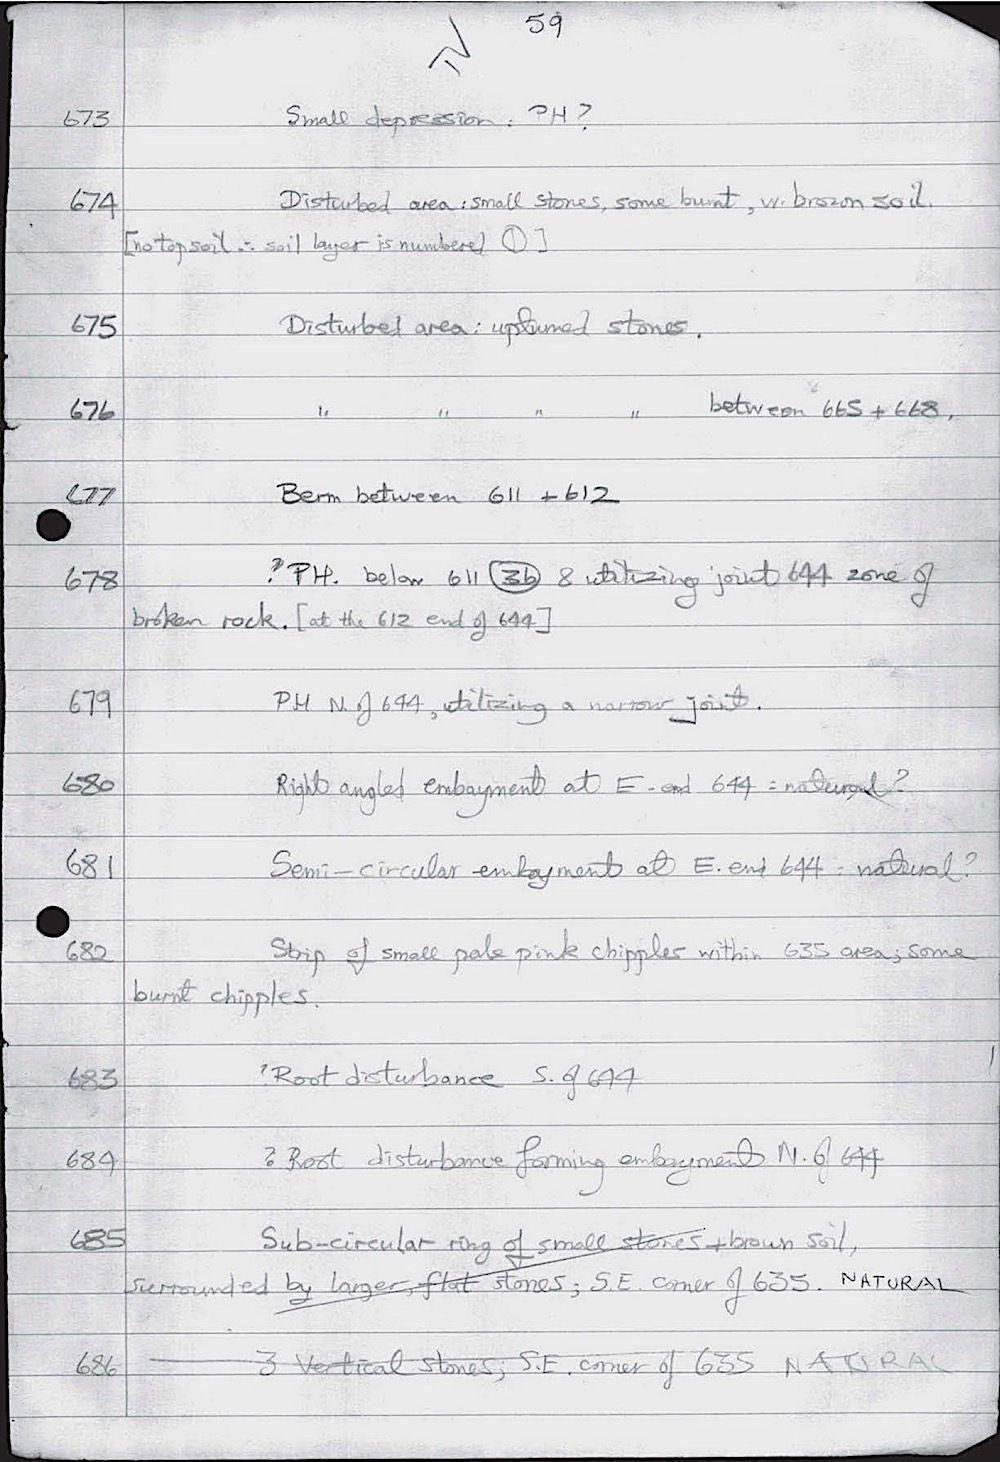 59
673 Small depression: PH?
674 Disturbed area: small stones, some burnt, w. brown soil.
[no topsoil ∴ soil layer is numbered ①]
675 Disturbed area: upturned stones.
676 " " " " between 665 + 668.
677 Berm between 611 + 612
678 ? PH. below 611 (3b) & utilizing joint 644 zone of
broken rock. [at the 612 end of 644]
679 PH N. of 644, utilizing a narrow joint.
680 Right angled embayment at E. end 644 : natural?
681 Semi-circular embayment at E. end 644 : natural?
682 Strip of small pale pink chipples within 635 area; some
burnt chipples.
683 ? Root disturbance S. of 644
684 ? Root disturbance forming embayment N. of 644
685 Sub-circular ring of small stones + brown soil,
surrounded by larger, flat stones; S.E. corner of 635. NATURAL
686 3 Vertical stones; S.E. corner of 635 NATURAL